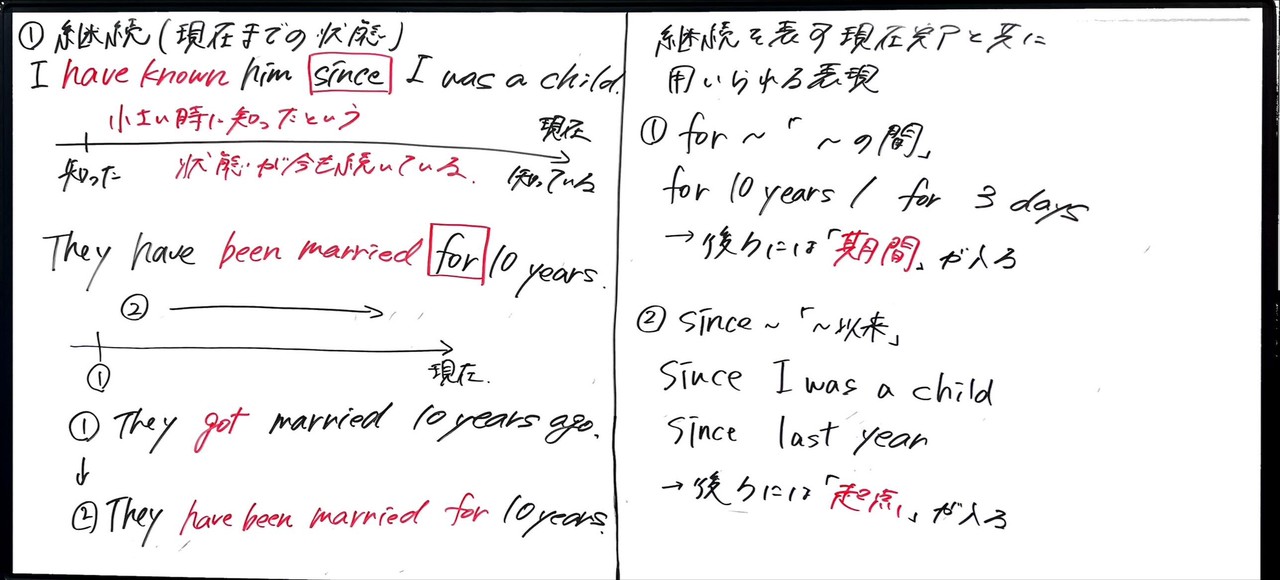 ① 継続(現在までの状態)
I have known him since I was a child.
小さい時に知ったという
現在
知った 状態が今も続いている. 知っている
They have been married for 10 years.
②
①
現在.
① They got married 10 years ago.
↓
② They have been married for 10 years.
継続を表す現在完了と共に
用いられる表現
① for ~ 「~の間」
for 10 years / for 3 days
→ 後ろには「期間」が入る
② since ~ 「~以来」
since I was a child
since last year
→ 後ろには「起点」が入る